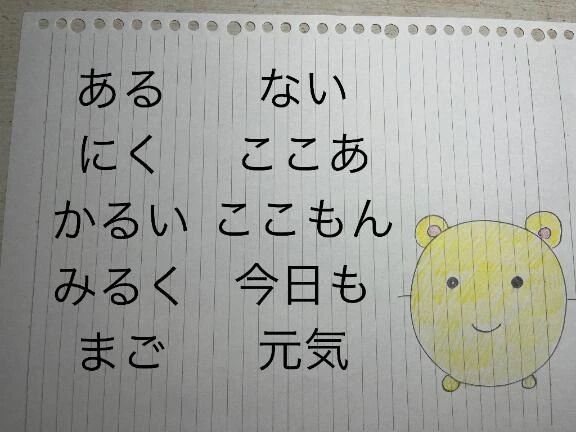 ある ない
にく ここあ
かるい ここもん
みるく 今日も
まご 元気